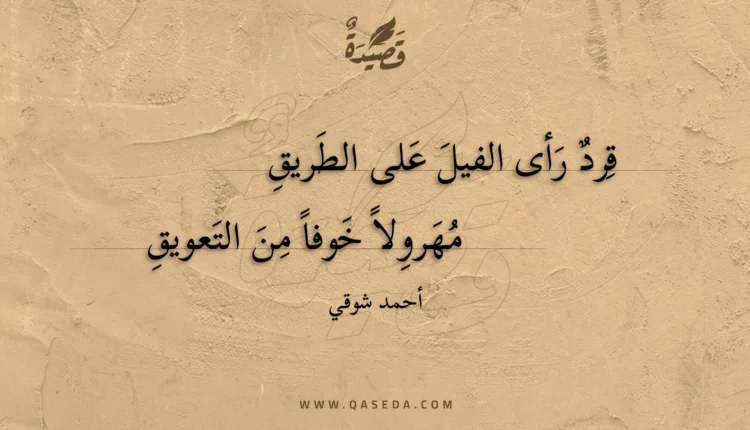 قَصِيدَةٌ
قِردٌ رَأى الفيلَ عَلى الطَريقِ
مُهَروِلاً خَوفاً مِنَ التَعويقِ
أحمد شوقي
WWW.QASEDA.COM